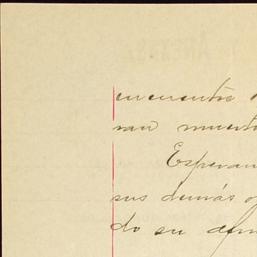 encuentro
han muerto
Esperan
sus demás o
do su afm